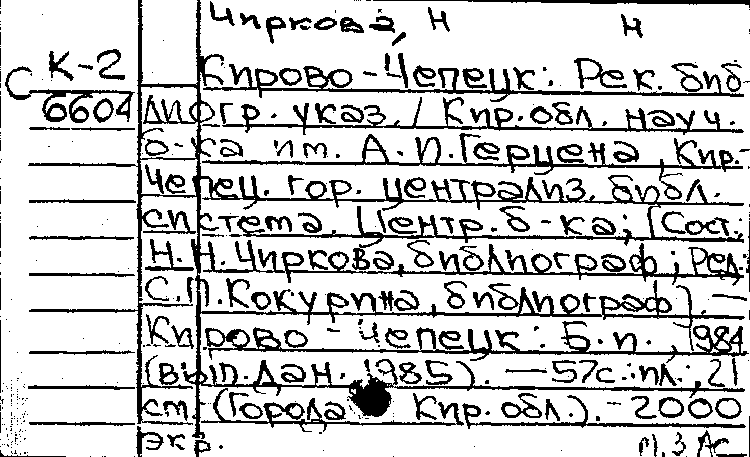 Чиркова, Н Н
С К-2 Кирово-Чепецк: Рек. биб-
6604 лиогр. указ. / Кир. обл. науч.
б-ка им. А.И. Герцена, Кир.-
Чепец. гор. централиз. библ.
система. Центр. б-ка; [Сост.:
Н.Н. Чиркова, библиограф; Ред.:
С.П. Кокурина, библиограф]. —
Кирово-Чепецк: Б.и., 1984
(вып. дан. 1985). — 57с.: ил.; 21
см. (Города Кир. обл.). - 2000
экз.